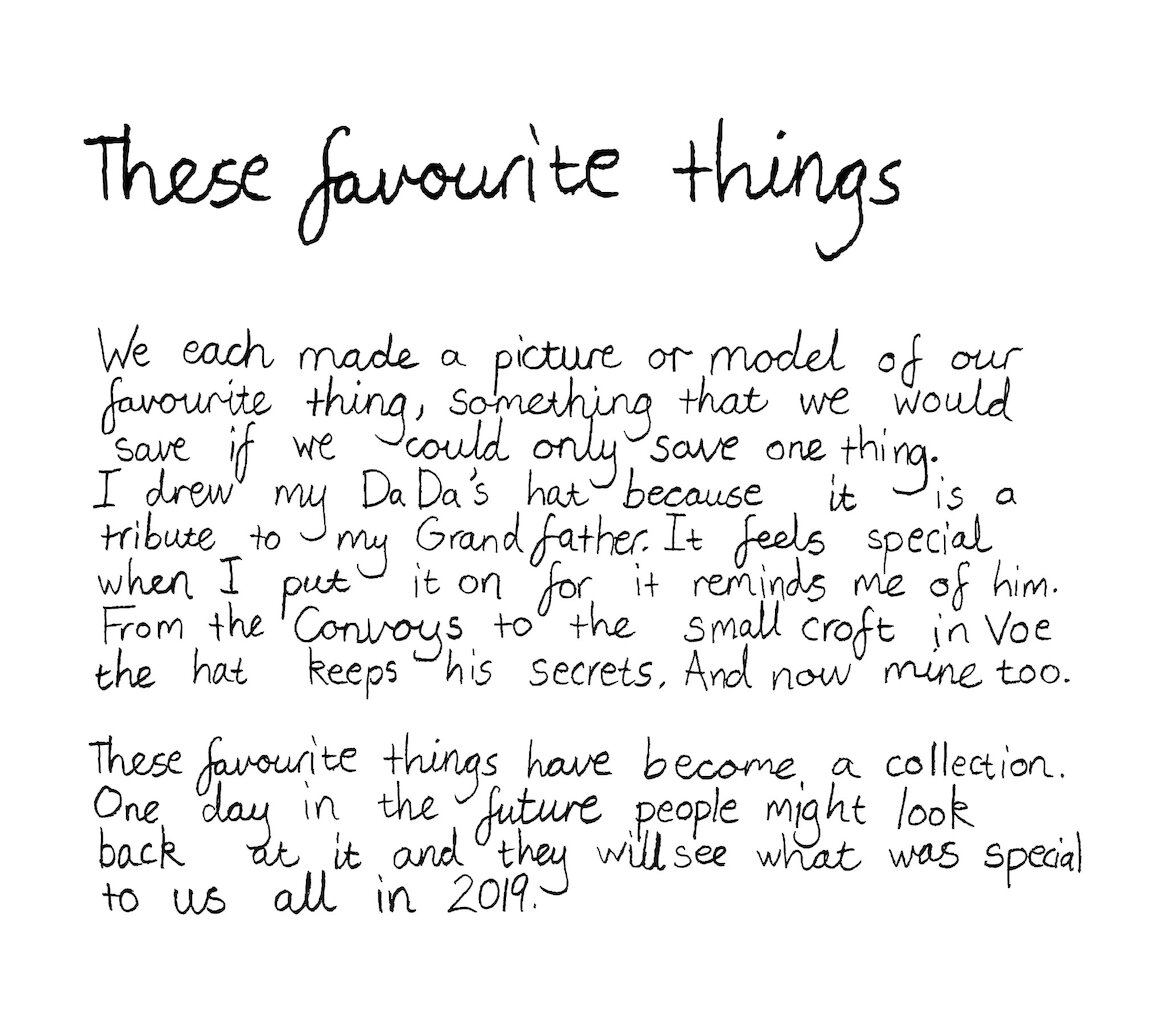 These favourite things
We each made a picture or model of our
favourite thing, something that we would
save if we could only save one thing.
I drew my DaDa's hat because it is a
tribute to my Grandfather. It feels special
when I put it on for it reminds me of him.
From the Convoys to the small croft in Voe
the hat keeps his secrets. And now mine too.
These favourite things have become a collection.
One day in the future people might look
back at it and they will see what was special
to us all in 2019.